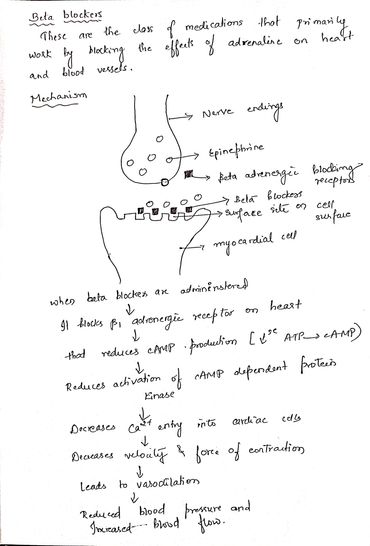 Beta blockers
These are the class of medications that primarily
work by blocking the effects of adrenaline on heart
and blood vessels.
Mechanism
Nerve endings
Epinephrine
Beta adrenergic blocking
receptors
Beta blockers
Surface site on cell
surface
myocardial cell
when beta blocker are administered
It blocks β1 adrenergic receptor on heart
that reduces cAMP production [↓se ATP → cAMP)
Reduces activation of cAMP dependent protein
kinase
Decreases Ca2+ entry into cardiac cells
Decreases velocity & force of contraction
Leads to vasodilation
Reduced blood pressure and
Increased blood flow.